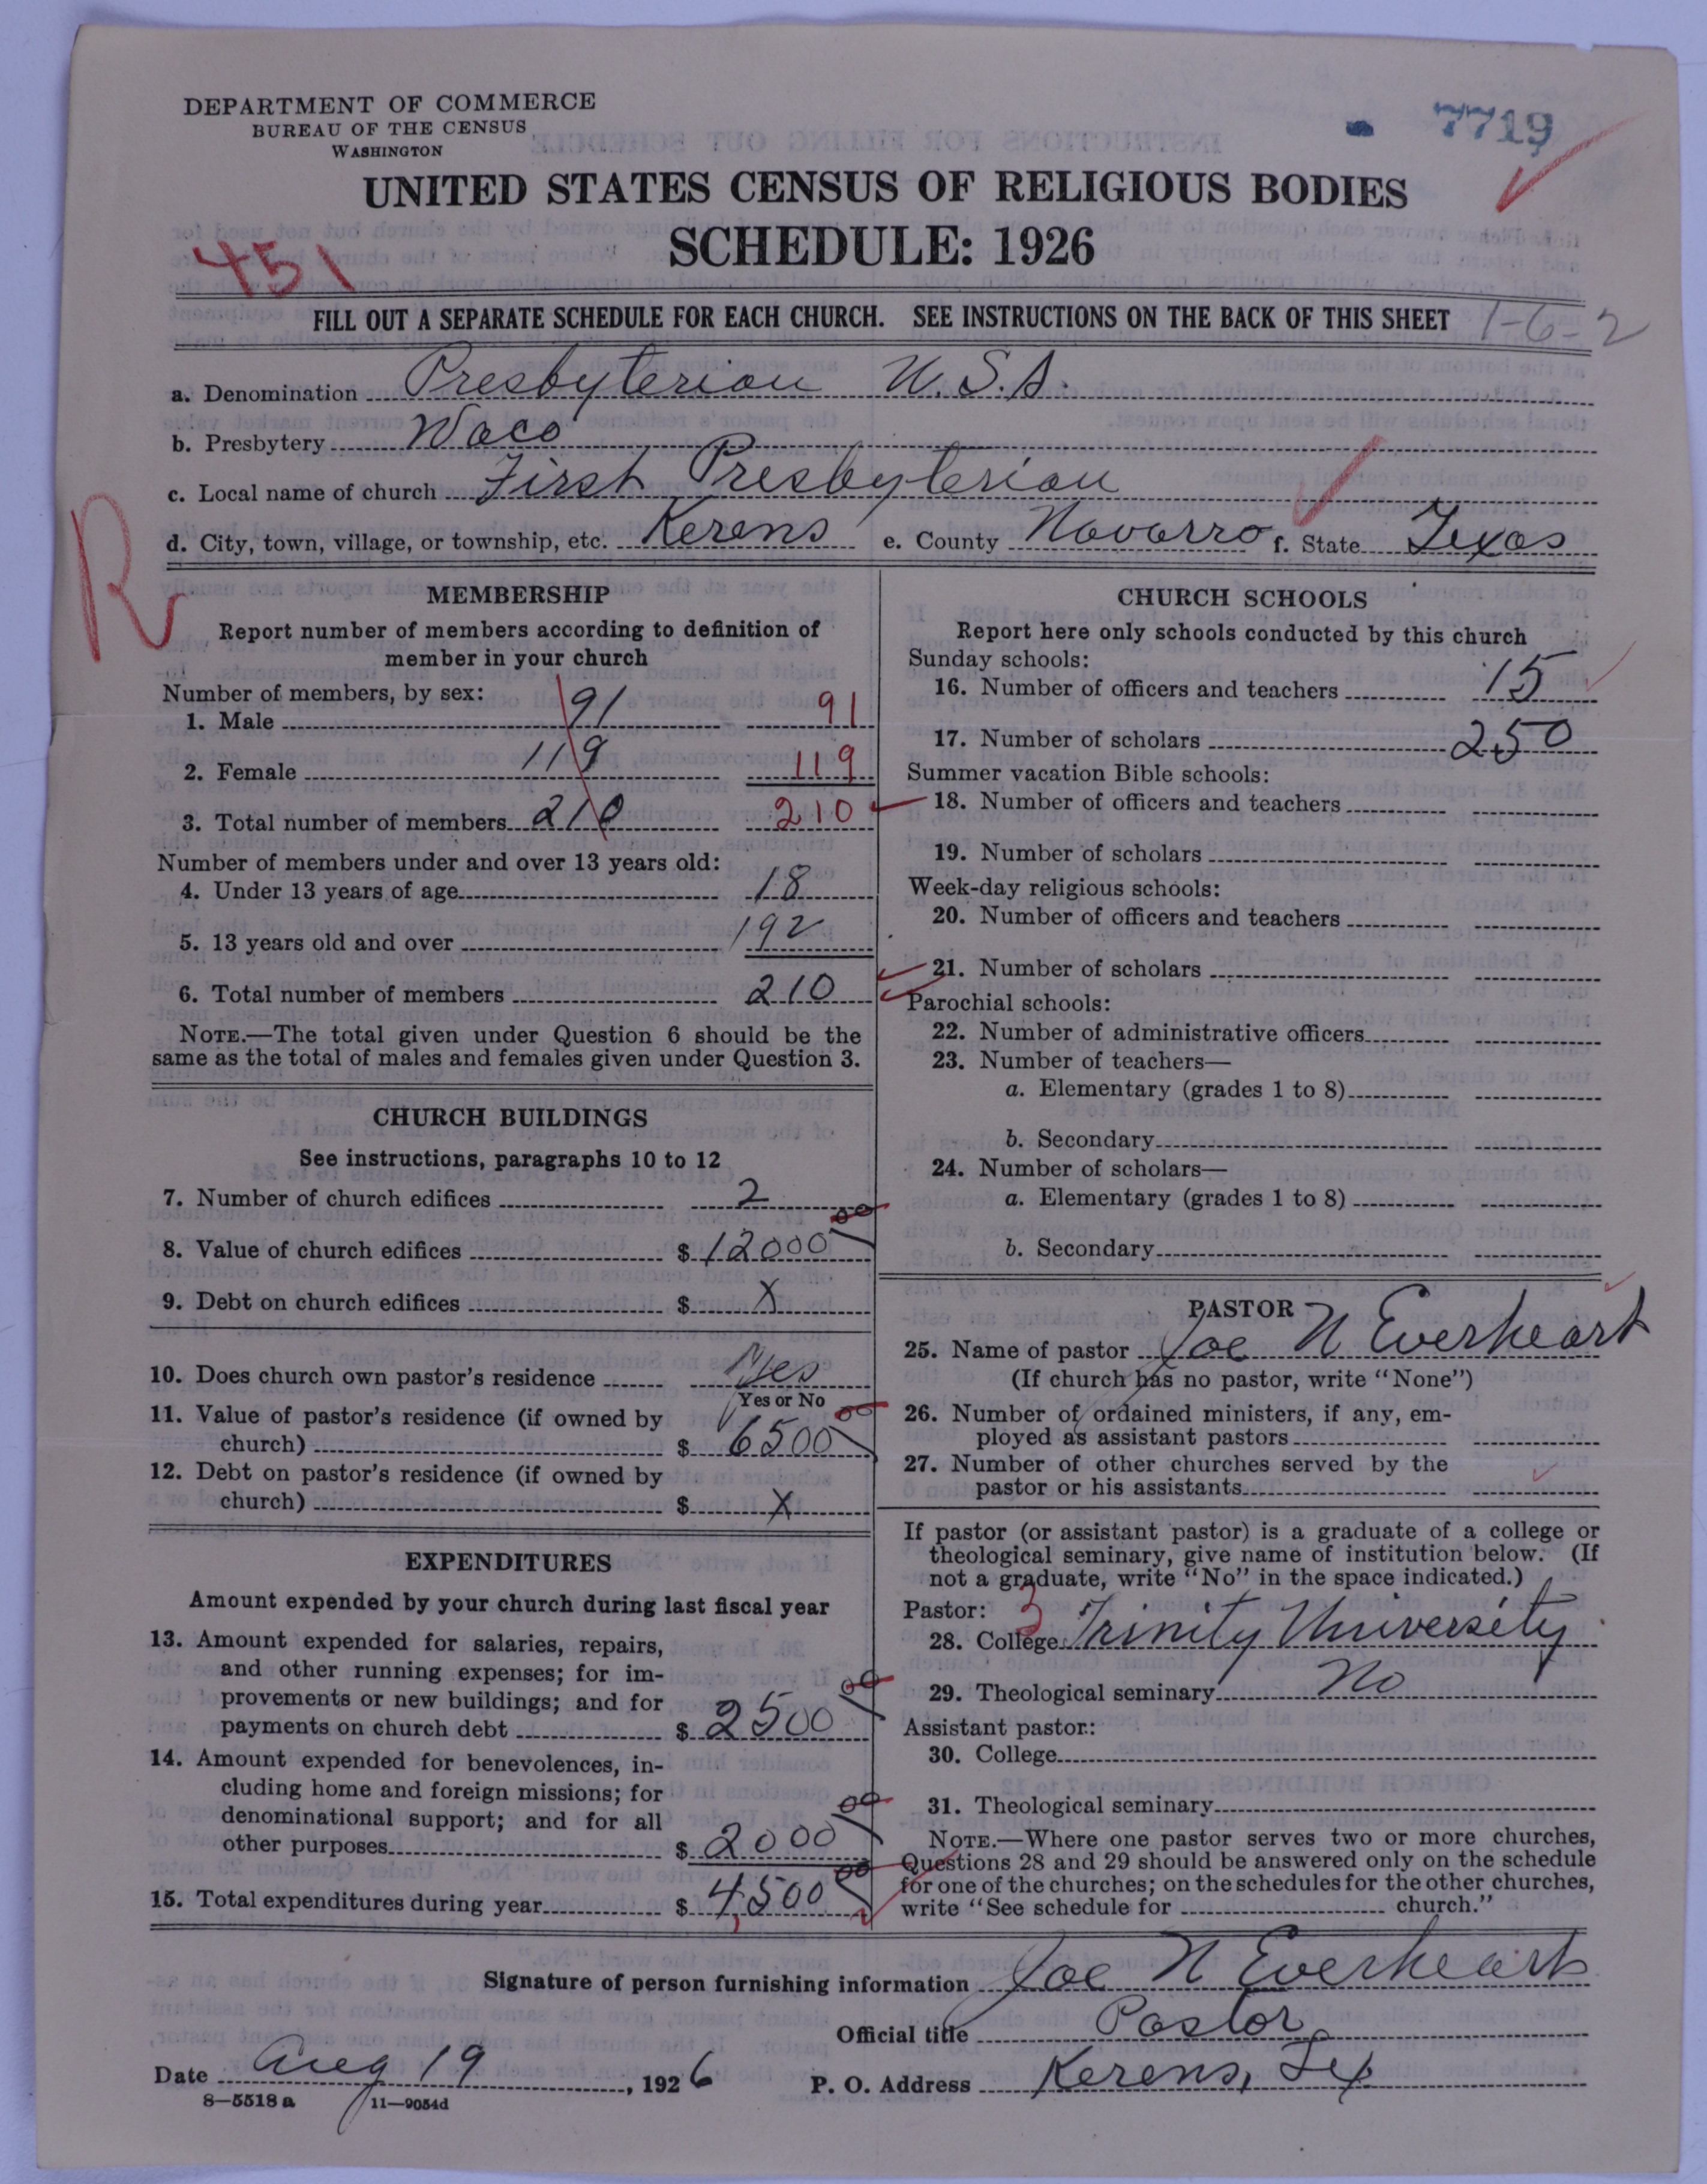 DEPARTMENT OF COMMERCE
BUREAU OF THE CENSUS
WASHINGTON
7719
UNITED STATES CENSUS OF RELIGIOUS BODIES
SCHEDULE: 1926
451
FILL OUT A SEPARATE SCHEDULE FOR EACH CHURCH. SEE INSTRUCTIONS ON THE BACK OF THIS SHEET 1-6-2
a. Denomination Presbyterian U.S.A.
b. Presbytery Waco
c. Local name of church First Presbyterian
d. City, town, village, or township, etc. Kerens e. County Navarro f. State Texas
R
MEMBERSHIP
Report number of members according to definition of
member in your church
Number of members, by sex:
1. Male 91 91
2. Female 119 119
3. Total number of members 210 210
Number of members under and over 13 years old:
4. Under 13 years of age 18
5. 13 years old and over 192
6. Total number of members 210
NOTE.—The total given under Question 6 should be the
same as the total of males and females given under Question 3.
CHURCH BUILDINGS
See instructions, paragraphs 10 to 12
7. Number of church edifices 2
8. Value of church edifices $ 12000 00
9. Debt on church edifices $ X
10. Does church own pastor's residence Yes
Yes or No
11. Value of pastor's residence (if owned by
church) $ 6500 00
12. Debt on pastor's residence (if owned by
church) $ X
EXPENDITURES
Amount expended by your church during last fiscal year
13. Amount expended for salaries, repairs,
and other running expenses; for im-
provements or new buildings; and for
payments on church debt $ 2500 00
14. Amount expended for benevolences, in-
cluding home and foreign missions; for
denominational support; and for all
other purposes $ 2000 00
15. Total expenditures during year $ 4,500 00
CHURCH SCHOOLS
Report here only schools conducted by this church
Sunday schools:
16. Number of officers and teachers 15
17. Number of scholars 250
Summer vacation Bible schools:
18. Number of officers and teachers
19. Number of scholars
Week-day religious schools:
20. Number of officers and teachers
21. Number of scholars
Parochial schools:
22. Number of administrative officers
23. Number of teachers—
a. Elementary (grades 1 to 8)
b. Secondary
24. Number of scholars—
a. Elementary (grades 1 to 8)
b. Secondary
PASTOR
25. Name of pastor Joe N Everheart
(If church has no pastor, write "None")
26. Number of ordained ministers, if any, em-
ployed as assistant pastors
27. Number of other churches served by the
pastor or his assistants
If pastor (or assistant pastor) is a graduate of a college or
theological seminary, give name of institution below. (If
not a graduate, write "No" in the space indicated.)
Pastor: 3
28. College Trinity University
29. Theological seminary No
Assistant pastor:
30. College
31. Theological seminary
NOTE.—Where one pastor serves two or more churches,
Questions 28 and 29 should be answered only on the schedule
for one of the churches; on the schedules for the other churches,
write "See schedule for church."
Signature of person furnishing information Joe N Everheart
Official title Pastor
Date Aug 19, 1926 P. O. Address Kerens, Tex
8—5518 a 11—9054d